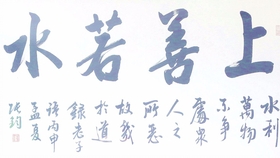 上善若水
水利
萬物
不爭
處衆
人之
所惡
故幾
於道
錄老子
語丙申
孟夏